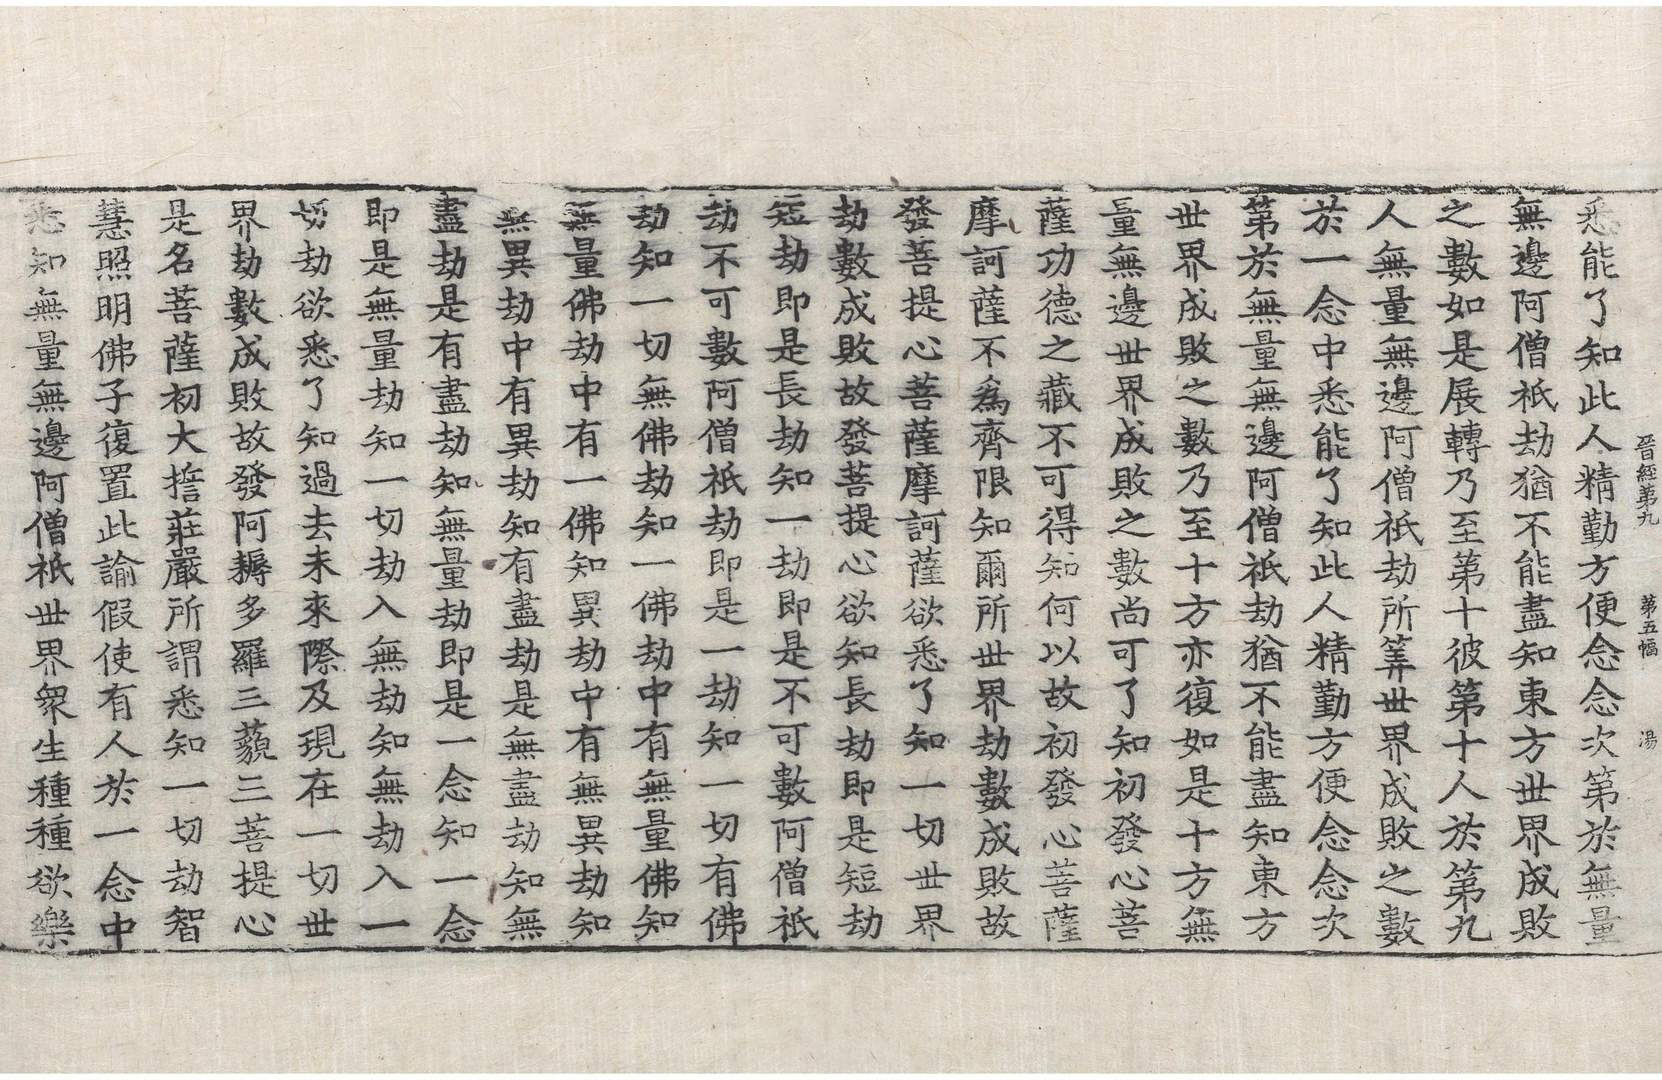 晉經第九 第五幅 湯
悉能了知此人精勤方便念念次第於無量
無邊阿僧祇劫猶不能盡知東方世界成敗
之數如是展轉乃至第十彼第十人於第九
人無量無邊阿僧祇劫所筭世界成敗之數
於一念中悉能了知此人精勤方便念念次
第於無量無邊阿僧祇劫猶不能盡知東方
世界成敗之數乃至十方亦復如是十方無
量無邊世界成敗之數尚可了知初發心菩
薩功德之藏不可得知何以故初發心菩薩
摩訶薩不為齊限知爾所世界劫數成敗故
發菩提心菩薩摩訶薩欲悉了知一切世界
劫數成敗故發菩提心欲知長劫即是短劫
短劫即是長劫知一劫即是不可數阿僧祇
劫不可數阿僧祇劫即是一劫知一切有佛
劫知一切無佛劫知一佛劫中有無量佛知
無量佛劫中有一佛知異劫中有無異劫知
無異劫中有異劫知有盡劫是無盡劫知無
盡劫是有盡劫知無量劫即是一念知一念
即是無量劫知一切劫入無劫知無劫入一
切劫欲悉了知過去未來際及現在一切世
界劫數成敗故發阿耨多羅三藐三菩提心
是名菩薩初大誓莊嚴所謂悉知一切劫智
慧照明佛子復置此諭假使有人於一念中
悉知無量無邊阿僧祇世界眾生種種欲樂